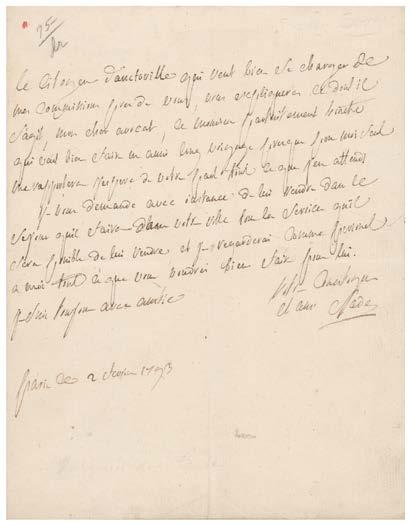 75
le Citoyen Danctoville qui veut bien se charger de
mes commissions pour vous, vous expliquera ce dont il
s'agit, mon cher avocat, ce monsieur parfaitement honnête
qui veut bien faire en ami long voyage presque pour moi seul
me rapportera j'espère de votre tout ce que j'en attends
je vous demande avec instance de lui rendre dans le
séjour qu'il faira dans votre ville tous les services qu'il
sera possible de lui rendre et je regarderai comme personel
a moi tout ce que vous voudrez bien faire pour lui.
je suis toujours avec amitié
votre concitoyen
et ami Sade
Paris ce 2 1793